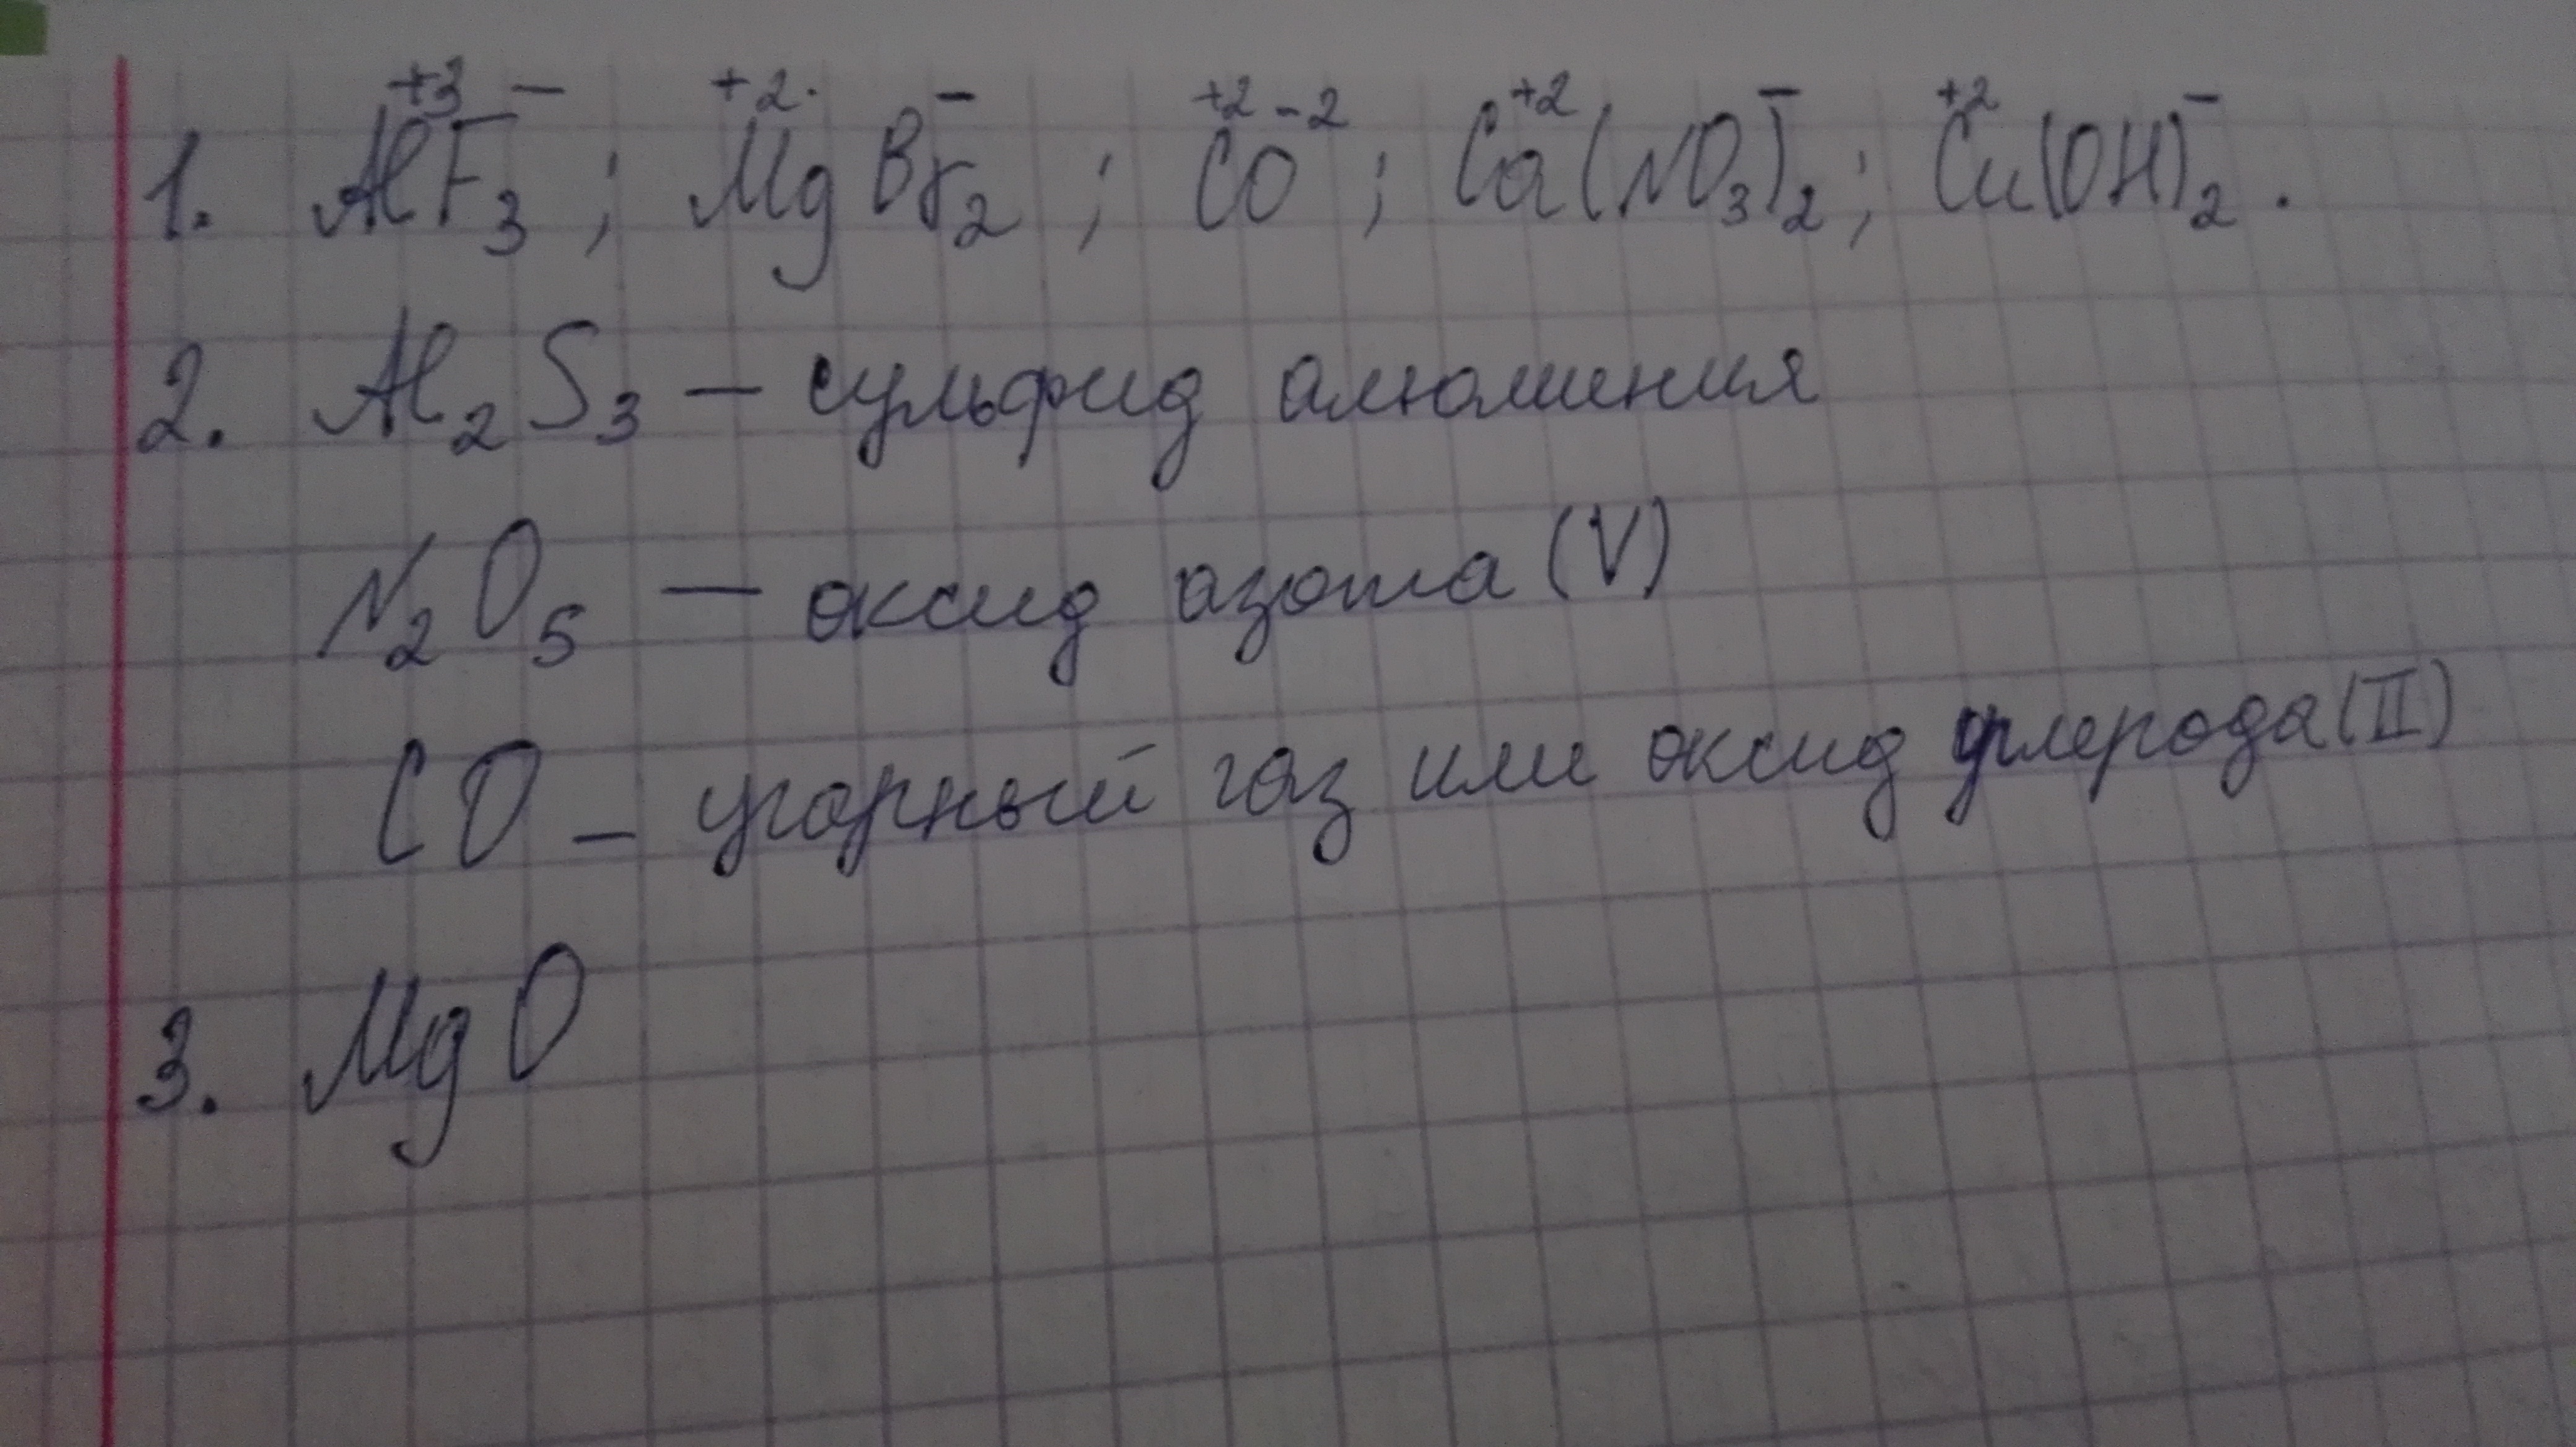 1. Al⁺³F₃⁻; Mg⁺²Br₂⁻; C⁺²O⁻²; Ca⁺²(NO₃)₂⁻; Cu⁺²(OH)₂⁻.
2. Al₂S₃ — сульфид алюминия
N₂O₅ — оксид азота (V)
CO — угарный газ или оксид углерода (II)
3. MgO